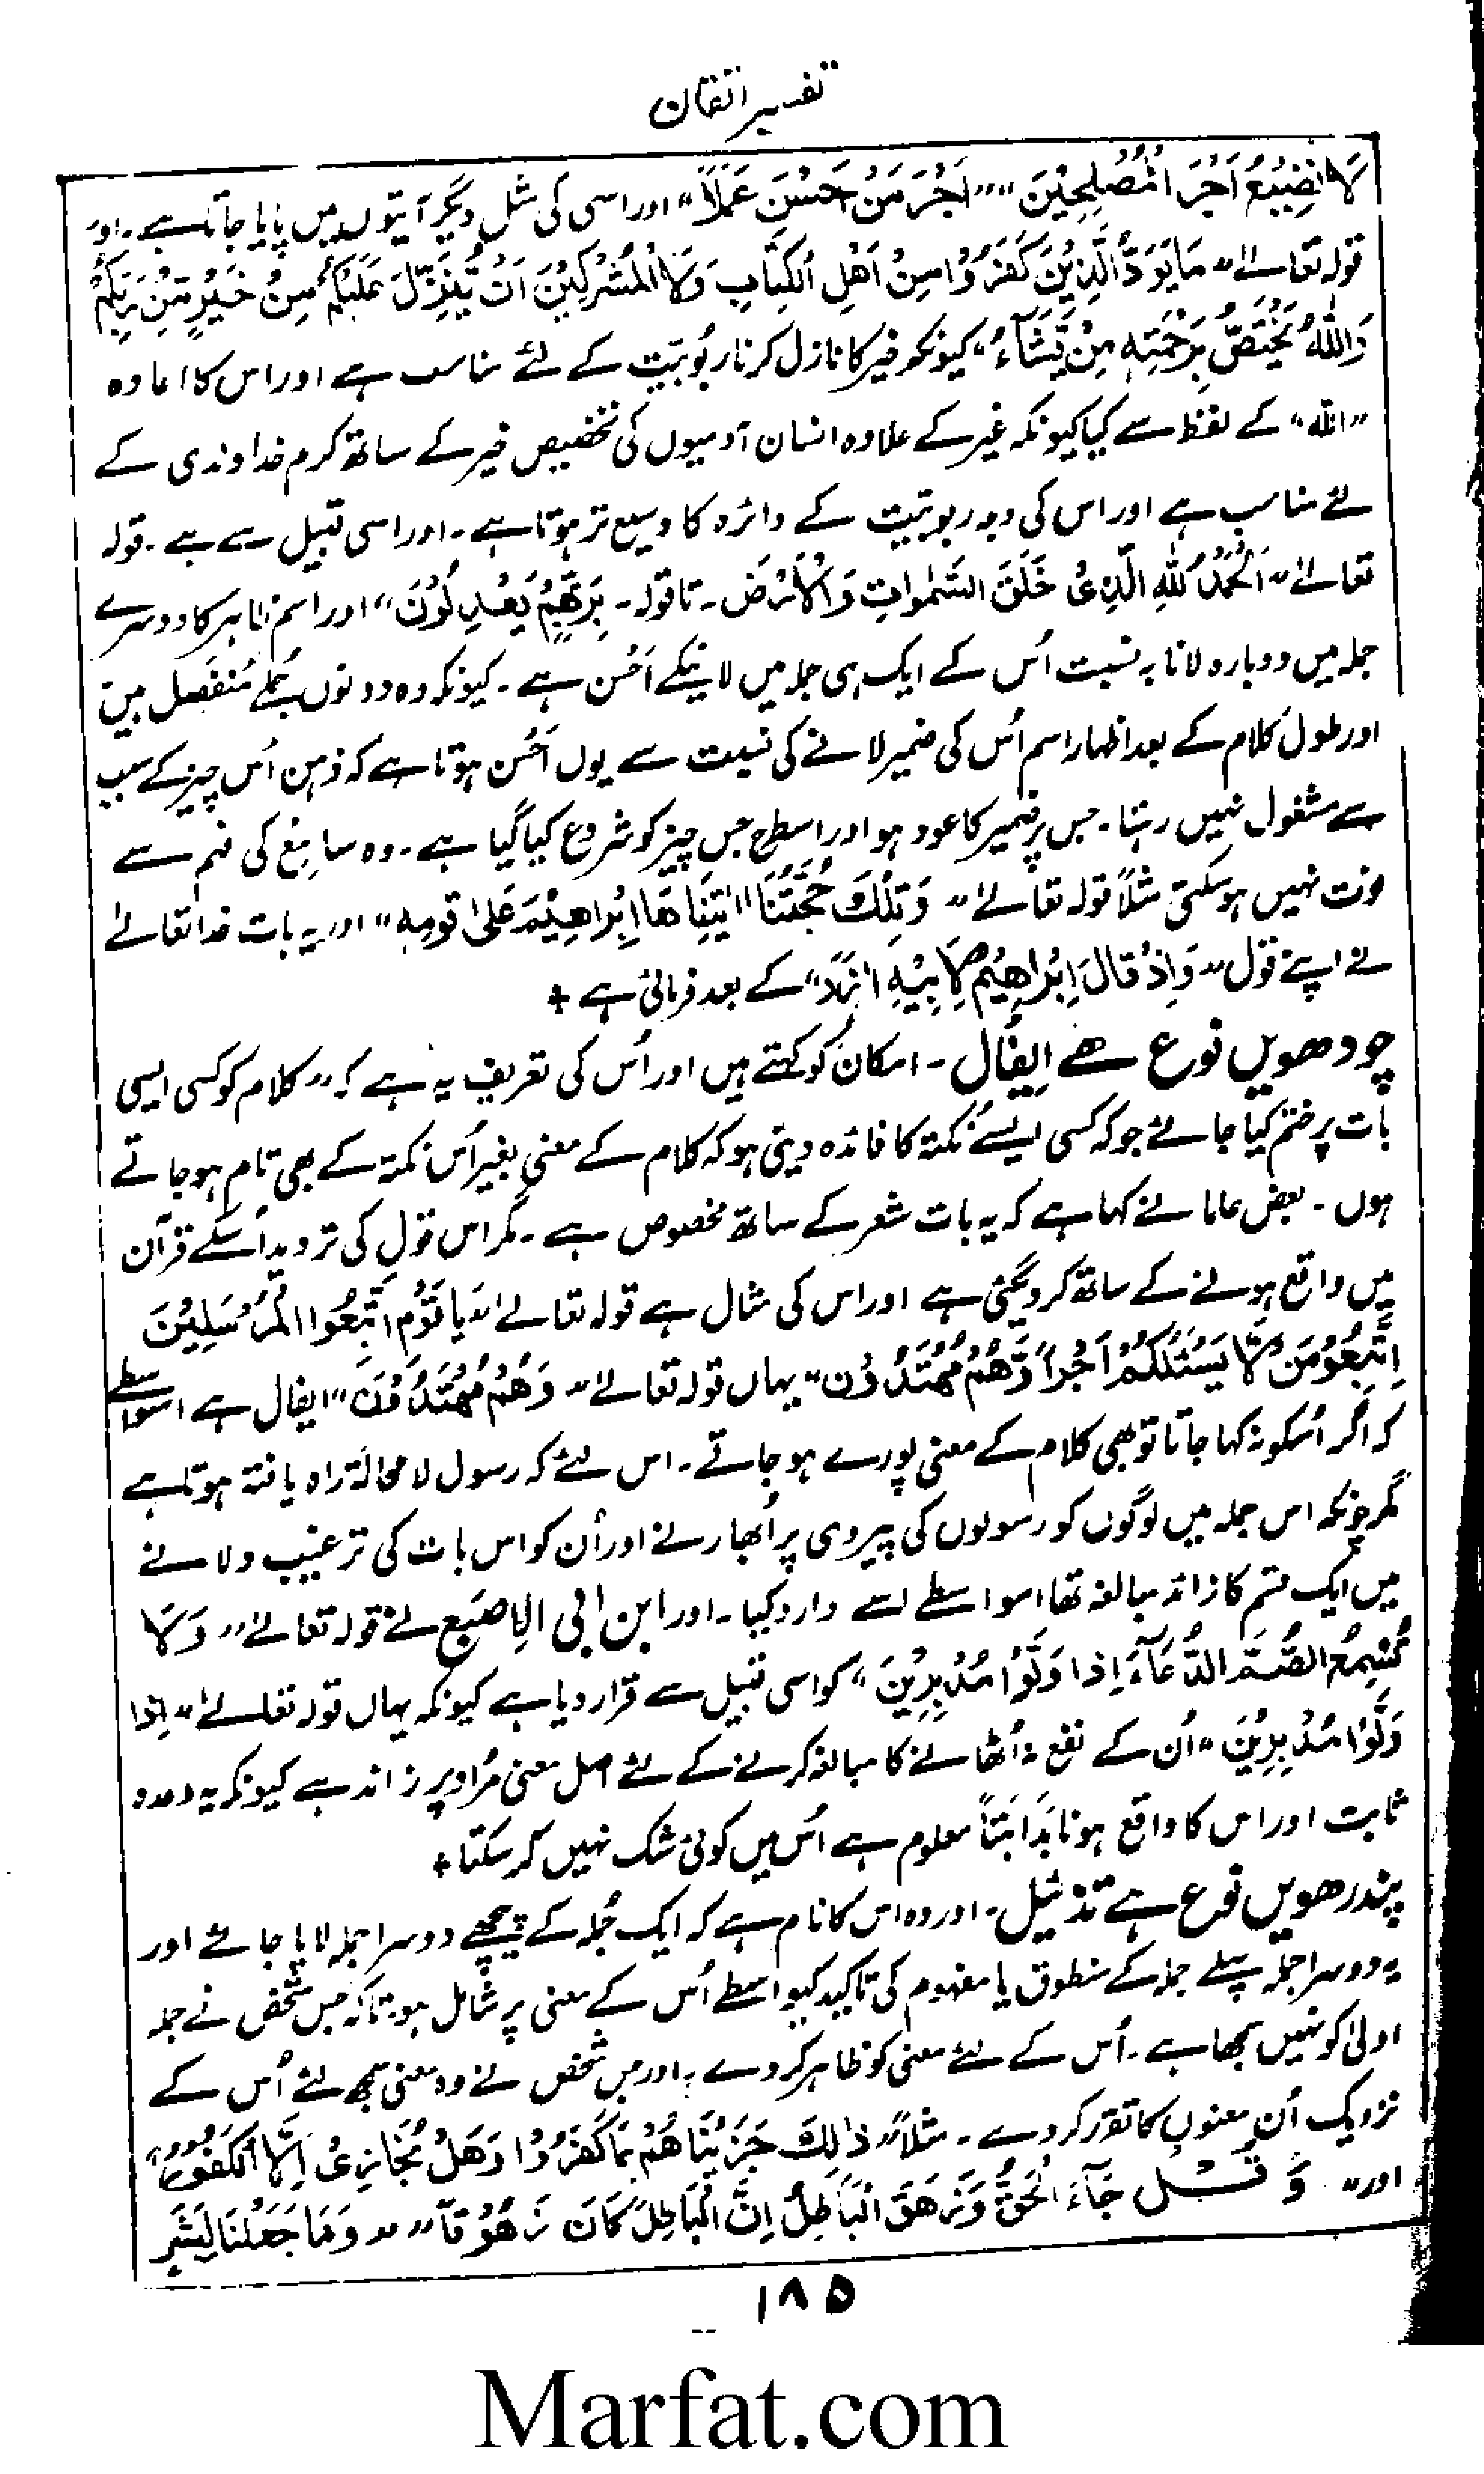 تفسیر اتقان
لَا نُضِيْعُ اَجْرَ الْمُصْلِحِيْنَ"" اَجْرَ مَنْ اَحْسَنَ عَمَلًا" اور اسی کی مثل دیگر آیتوں میں پایا جاتا ہے۔ اور
قولہ تعالےٰ "مَا يَوَدُّ الَّذِيْنَ كَفَرُوْا مِنْ اَهْلِ الْكِتَابِ وَلَا الْمُشْرِكِيْنَ اَنْ يُّنَزَّلَ عَلَيْكُمْ مِنْ خَيْرٍ مِّنْ رَّبِّكُمْ
وَاللّٰهُ يَخْتَصُّ بِرَحْمَتِهٖ مَنْ يَّشَآءُ" کیونکہ خیر کا نازل کرنا ربُوبیّت کے لئے مناسب ہے اور اس کا اعادہ
"اللہ" کے لفظ سے کیا کیونکہ غیر کے علاوہ انسان آدمیوں کی تخصیص خیر کے ساتھ کرم خداوندی کے
لئے مناسب ہے اور اس کی وجہ ربوبیّت کے دائرہ کا وسیع تر ہوتا ہے۔ اور اسی قبیل سے ہے۔ قولہ
تعالےٰ "اَلْحَمْدُ لِلّٰهِ الَّذِىْ خَلَقَ السَّمٰوَاتِ وَالْاَرْضَ۔ تا قولہ۔ بِرَبِّهِمْ يَعْدِلُوْنَ" اور اسم ظاہر کا دوسرے
جملہ میں دوبارہ لانا بہ نسبت اُس کے ایک ہی جملہ میں لانیکے اَحْسن ہے۔ کیونکہ وہ دونوں جُملے مُنفَصل ہیں
اور طول کلام کے بعد اظہار اسم اُس کی ضمیر لانے کی نسبت سے یوں اَحْسن ہوتا ہے کہ ذہن اُس چیز کے سبب
سے مشغول نہیں رہتا۔ جس پر ضمیر کا عود ہو اور اسطرح جس چیز کو شروع کیا گیا ہے۔ وہ سامِع کی فہم سے
فوت نہیں ہو سکتی مثلاً قولہ تعالےٰ "وَتِلْكَ حُجَّتُنَا اٰتَيْنَاهَا اِبْرَاهِيْمَ عَلىٰ قَومِهٖ" اور یہ بات خدا تعالےٰ
نے اپنے قول "وَاِذْ قَالَ اِبْرَاهِيْم لِاَبِيْهِ اٰزَرَ" کے بعد فرمائی ہے +
چودھویں نوع ھے اِیْغال۔ امکان کو کہتے ہیں اور اُس کی تعریف یہ ہے کہ "کلام کو کسی ایسی
بات پر ختم کیا جائے جو کہ کسی ایسے نُکتہ کا فائدہ دیتی ہو کہ کلام کے معنی بغیر اُس نکتہ کے بھی تام ہو جاتے
ہوں۔ بعض علما نے کہا ہے کہ یہ بات شعر کے ساتھ مخصوص ہے۔ مگر اس قول کی تردید اُسکے قرآن
میں واقع ہونے کے ساتھ کر دیگئی ہے اور اس کی مثال ہے قولہ تعالےٰ "یَا قَوْمِ اتَّبِعُوا الْمُرْسَلِيْنَ
اِتَّبِعُوْ مَنْ لَّا يَسْئَلُكُمْ اَجْراً وَّهُمْ مُهْتَدُوْن" یہاں قولہ تعالےٰ "وَهُمْ مُهْتَدُوْنَ" ایغال ہے اسواسطے
کہ اگر اُسکو نہ کہا جاتا تو بھی کلام کے معنی پورے ہو جاتے۔ اس لئے کہ رسول لا محالۃ راہ یافتہ ہوتا ہے
مگر چونکہ اس جملہ میں لوگوں کو رسولوں کی پیروی پر اُبھارنے اور اُن کو اس بات کی ترغیب دلانے
میں ایک قسم کا زائد مبالغہ تھا اسواسطے اسے وارد کیا۔ اور ابن ابی الاِصبَع نے قولہ تعالےٰ "وَلَا
تُسْمِعُ الصُّمَّ الدُّعَآءَ اِذَا وَلَّوْا مُدْبِرِيْنَ" کو اسی قبیل سے قرار دیا ہے کیونکہ یہاں قولہ تعالےٰ "اِذَا
وَلَّوْا مُدْبِرِيْنَ" اُن کے نفع نہ اُٹھانے کا مبالغہ کرنے کے لئے اصل معنی مُراد پر زائد ہے کیونکہ یہ وعدہ
ثابت اور اس کا واقع ہونا بَدَاہَتاً معلوم ہے اُس میں کوئی شک نہیں کر سکتا +
پندرھویں نوع ہے تذئیل۔ اور وہ اس کا نام ہے کہ ایک جُملہ کے پیچھے دوسرا جملہ لایا جائے اور
یہ دوسرا جملہ پہلے جملہ کے منطوق یا مفہوم کی تاکید کیواسطے اُس کے معنی پر شامل ہو تاکہ جس شخص نے جملہ
اولیٰ کو نہیں سمجھا ہے۔ اُس کے لئے معنی کو ظاہر کر دے۔ اور جس شخص نے وہ معنی سمجھ لئے اُس کے
نزدیک اُن معنوں کا تقرر کر دے۔ مثلاً "ذٰلِكَ جَزَيْنَاهُمْ بِمَا كَفَرُوْا وَهَلْ نُجَازِىْ اِلَّا الْكَفُوْرَ"
اور" وَقُلْ جَآءَ الْحَقُّ وَزَهَقَ الْبَاطِلُ اِنَّ الْبَاطِلَ كَانَ زَهُوْقاً" "وَمَا جَعَلْنَا لِبَشَرٍ
۱۸۵
Marfat.com